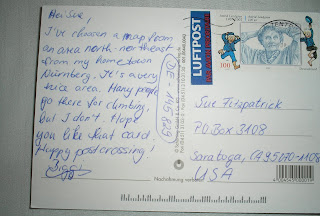 Hei Sue!
I've chosen a map from
an area north-northeast
from my hometown
Nürnberg. It's a very
nice area. Many people
go there for climbing,
but I don't. Hope
you like that card.
Happy postcrossing!
LUFTPOST
100
Sue Fitzpatrick
PO Box 3108
Saratoga, CA 95070-1108
USA
Nachahmung verboten